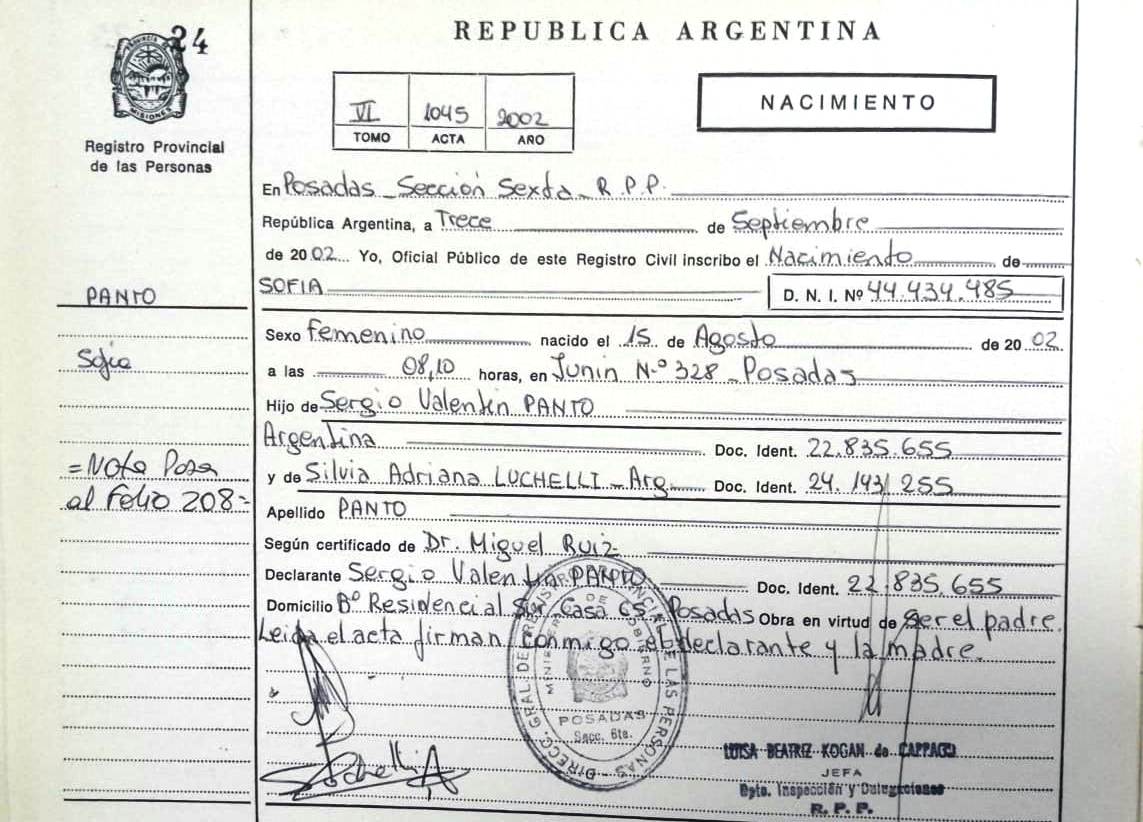 24
REPUBLICA ARGENTINA
PROVINCIA DE MISIONES
Registro Provincial
de las Personas
VI 1045 2002
TOMO ACTA AÑO
NACIMIENTO
En Posadas - Sección Sexta - R.P.P.
República Argentina, a Trece de Septiembre
de 2002 Yo, Oficial Público de este Registro Civil inscribo el Nacimiento de
SOFIA D. N. I. Nº 44.434.485
PANTO
Sofia
=Nota Pasa
al Folio 208=
Sexo femenino nacido el 15 de Agosto de 2002
a las 08,10 horas, en Junin N.º 328 - Posadas
Hijo de Sergio Valentin PANTO
Argentina Doc. Ident. 22.835.655
y de Silvia Adriana LUCHELLI - Arg. Doc. Ident. 24.143.255
Apellido PANTO
Según certificado de Dr. Miguel Ruiz
Declarante Sergio Valentin PANTO Doc. Ident. 22.835.655
Domicilio Bº Residencial Sur Casa 65 Posadas Obra en virtud de ser el padre.
Leida el acta firman conmigo el declarante y la madre.
DIRECC. GRAL. DE REGISTRO PROVINCIAL DE LAS PERSONAS
MINISTERIO DE GOBIERNO
POSADAS
Secc. 6ta.
LUISA BEATRIZ KOGAN de CAPPAGLI
JEFA
Dpto. Inspección y Delegaciones
R. P. P.